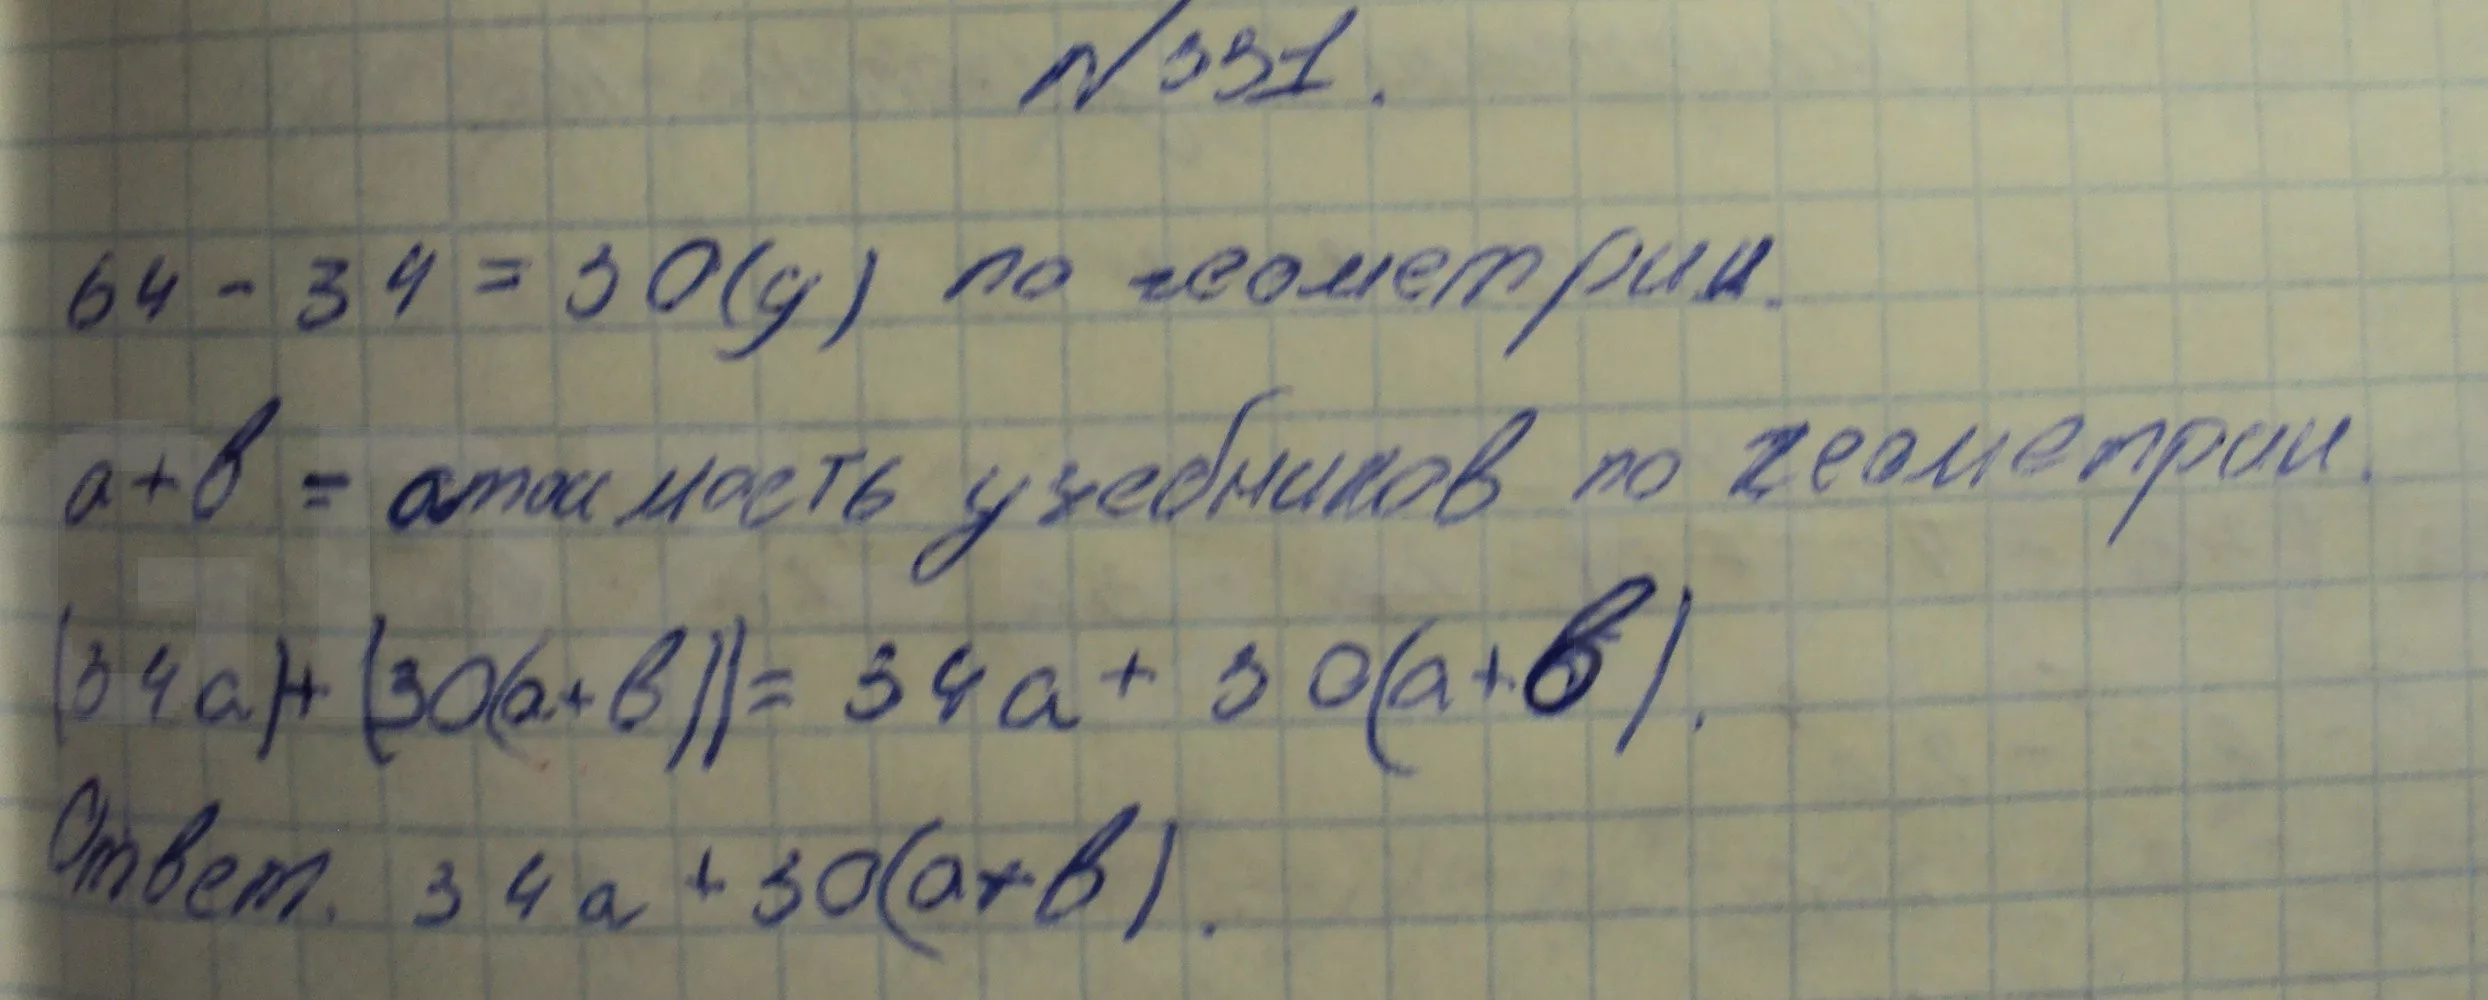 №331.
64 - 34 = 30(у) по геометрии.
а+в = стоимость учебников по геометрии.
(34а)+(30(а+в))= 34а + 30(а+в).
Ответ. 34а + 30(а+в).